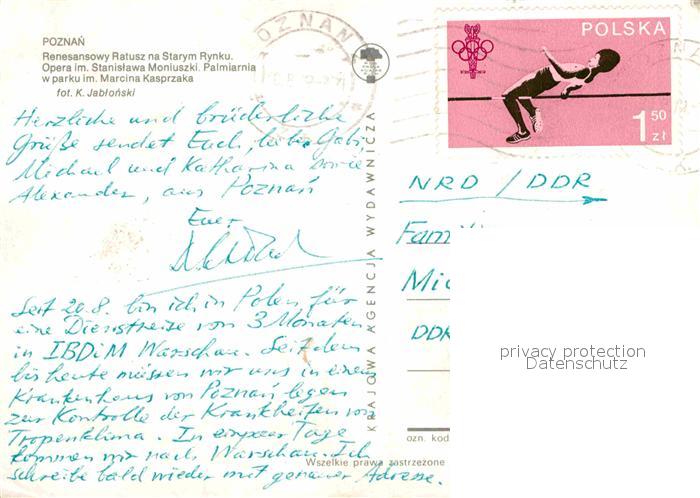 POZNAŃ
Renesansowy Ratusz na Starym Rynku.
Opera im. Stanisława Moniuszki. Palmiarnia
w parku im. Marcina Kasprzaka
fot. K. Jabłoński
POZNAŃ
POLSKA
1 50 zł
Herzliche und brüderliche
Grüße sendet Euch, liebe Gabi,
Michael und Katharina sowie
Alexander, aus Poznań
Euer
Seit 20.8. bin ich in Polen für
eine Dienstreise von 3 Monaten
in IBDiM Warschau. Seit dem
bis heute müssen wir uns in einem
Krankenhaus von Poznań legen
zur Kontrolle der Krankheiten von
Tropenklima. In ein paar Tage
kommen wir nach Warschau. Ich
schreibe bald wieder mit genauer Adresse.
KRAJOWA AGENCJA WYDAWNICZA
NRD / DDR
Fam
Mic
DDR
privacy protection
Datenschutz
ozn. kod
Wszelkie prawa zastrzeżone